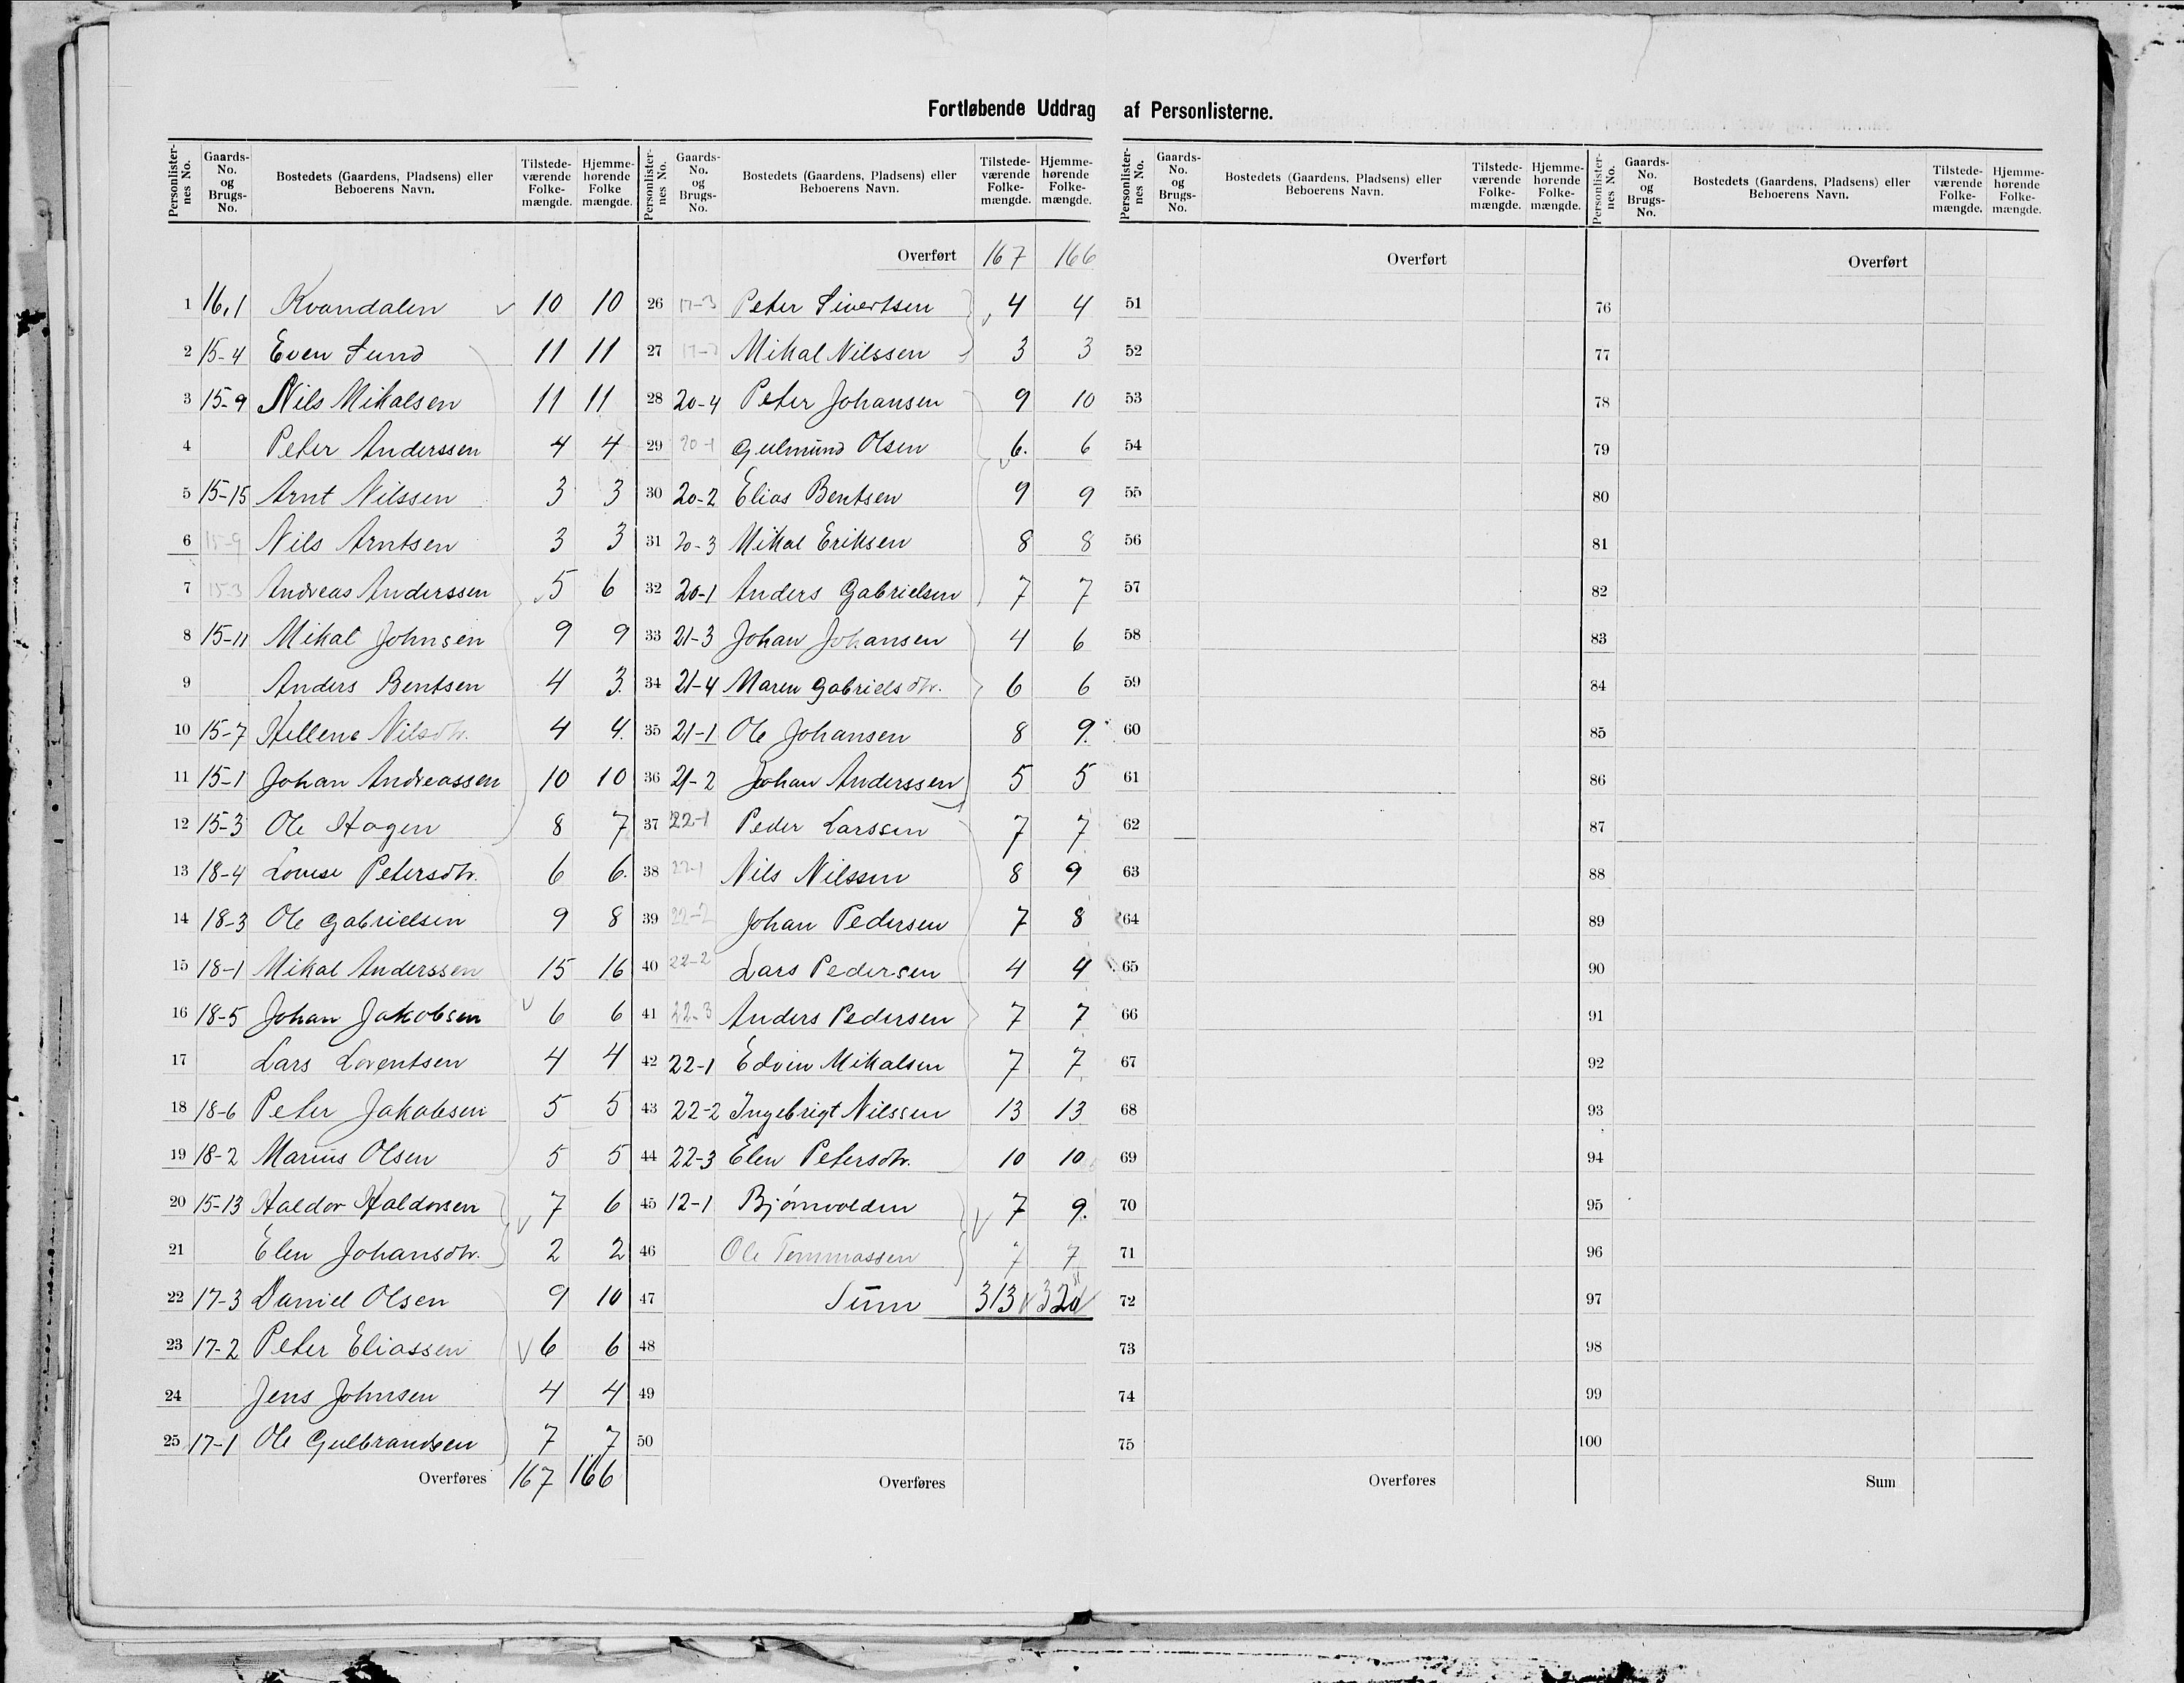 Fortløbende Uddrag af Personlisterne.
Personlister-nes No. | Gaards-No. og Brugs-No. | Bostedets (Gaardens, Pladsens) eller Beboerens Navn. | Tilstede-værende Folke-mængde. | Hjemme-hørende Folke mængde.
1 16,1 Kvandalen 10 10
2 15-4 Even Sund 11 11
3 15-9 Nils Mikalsen 11 11
4 Peter Anderssen 4 4
5 15-15 Arnt Nilssen 3 3
6 15-9 Nils Arntsen 3 3
7 15-3 Andreas Anderssen 5 6
8 15-11 Mikal Johnsen 9 9
9 Anders Bentsen 4 3
10 15-7 Hellene Nilsdtr. 4 4
11 15-1 Johan Andreassen 10 10
12 15-3 Ole Hagen 8 7
13 18-4 Lovise Petersdtr. 6 6
14 18-3 Ole Gabrielsen 9 8
15 18-1 Mikal Anderssen 15 16
16 18-5 Johan Jakobsen 6 6
17 Lars Lorentsen 4 4
18 18-6 Peter Jakobsen 5 5
19 18-2 Marius Olsen 5 5
20 15-13 Haldor Haldorsen 7 6
21 Elen Johansdtr. 2 2
22 17-3 Daniel Olsen 9 10
23 17-2 Peter Eliassen 6 6
24 Jens Johnsen 4 4
25 17-1 Ole Gulbrandsen 7 7
Overføres 167 166
Personlister-nes No. | Gaards-No. og Brugs-No. | Bostedets (Gaardens, Pladsens) eller Beboerens Navn. | Tilstede-værende Folke-mængde. | Hjemme-hørende Folke-mængde.
Overført 167 166
26 17-3 Peter Sivertsen 4 4
27 Mikal Nilssen 3 3
28 20-4 Peter Johansen 9 10
29 20-1 Gulmund Olsen 6. 6
30 20-2 Elias Bentsen 9 9
31 20-3 Mikal Eriksen 8 8
32 20-1 Anders Gabrielsen 7 7
33 21-3 Johan Johansen 4 6
34 21-4 Maren Gabrielsdtr. 6 6
35 21-1 Ole Johansen 8 9.
36 21-2 Johan Anderssen 5 5
37 22-1 Peder Larssen 7 7
38 22-1 Nils Nilssen 8 9
39 22-2 Johan Pedersen 7 8
40 22-2 Lars Pedersen 4 4
41 22-3 Anders Pedersen 7 7
42 22-1 Edvin Mikalsen 7 7
43 22-2 Ingebrigt Nilssen 13 13
44 22-3 Elen Petersdtr. 10 10
45 12-1 Bjørnvolden 7 9.
46 Ole Tommassen 7 7
47 Sum 313 320
48
49
50
Overføres
Personlister-nes No. | Gaards-No. og Brugs-No. | Bostedets (Gaardens, Pladsens) eller Beboerens Navn. | Tilstede-værende Folke-mængde. | Hjemme-hørende Folke-mængde.
Overført
51
52
53
54
55
56
57
58
59
60
61
62
63
64
65
66
67
68
69
70
71
72
73
74
75
Overføres
Personlister-nes No. | Gaards-No. og Brugs-No. | Bostedets (Gaardens, Pladsens) eller Beboerens Navn. | Tilstede-værende Folke-mængde. | Hjemme-hørende Folke-mængde.
Overført
76
77
78
79
80
81
82
83
84
85
86
87
88
89
90
91
92
93
94
95
96
97
98
99
100
Sum